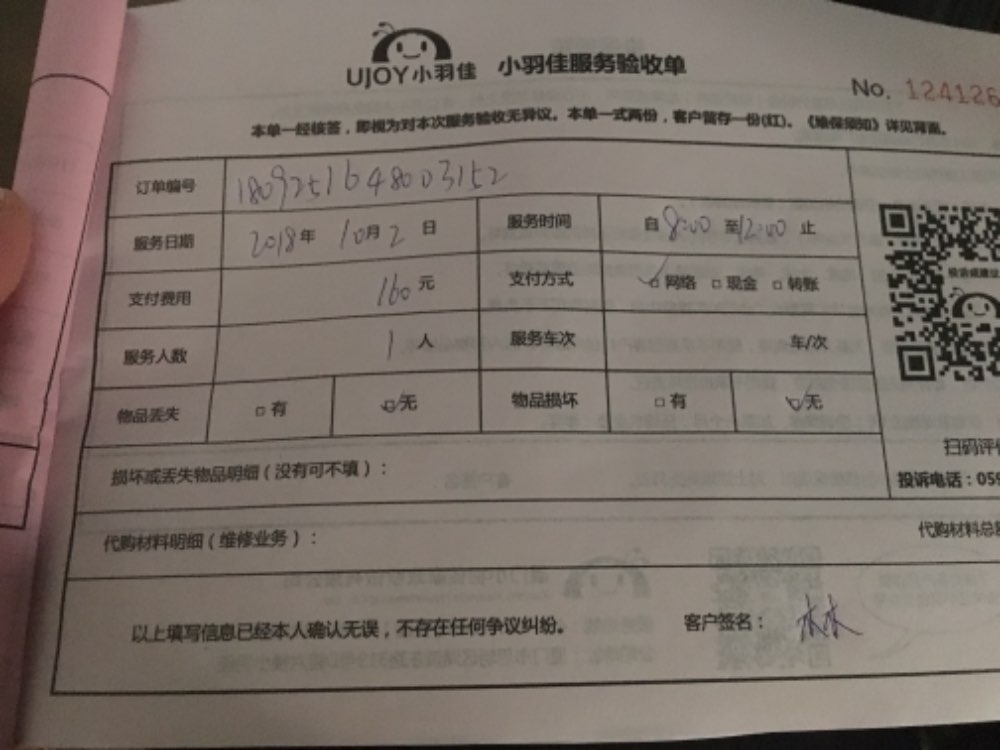 UJOY小羽佳 小羽佳服务验收单
No. 124126
本单一经核答，即视为对本次服务验收无异议。本单一式两份，客户留存一份(红)。《维保须知》详见背面。
订单编号 1809251648003152
服务日期 2018年 10月2日 服务时间 自8:00至12:00止
支付费用 160元 支付方式 网络 现金 转账
服务人数 1人 服务车次 车/次
物品丢失 有 无 物品损坏 有 无
扫码评价
损坏或丢失物品明细(没有可不填)：
投诉电话：059
代购材料明细(维修业务)：
代购材料总
以上填写信息已经本人确认无误，不存在任何争议纠纷。 客户签名： 林